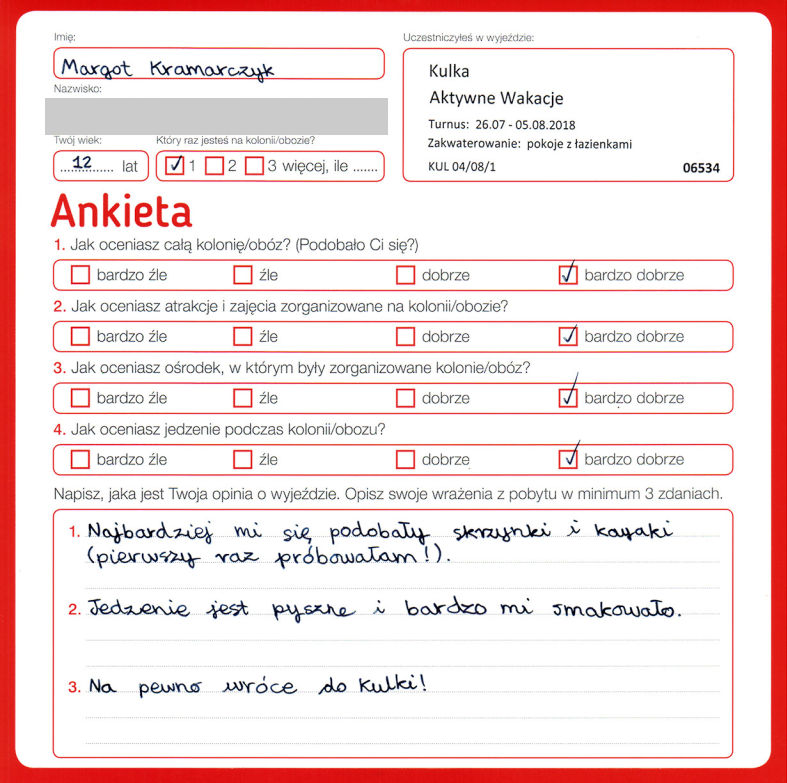 Imię:
Margot Kramarczyk
Nazwisko:
Twój wiek:
Który raz jesteś na kolonii/obozie?
12 lat
1 2 3 więcej, ile .......
Uczestniczyłeś w wyjeździe:
Kulka
Aktywne Wakacje
Turnus: 26.07 - 05.08.2018
Zakwaterowanie: pokoje z łazienkami
KUL 04/08/1 06534
Ankieta
1. Jak oceniasz całą kolonię/obóz? (Podobało Ci się?)
bardzo źle źle dobrze bardzo dobrze
2. Jak oceniasz atrakcje i zajęcia zorganizowane na kolonii/obozie?
bardzo źle źle dobrze bardzo dobrze
3. Jak oceniasz ośrodek, w którym były zorganizowane kolonie/obóz?
bardzo źle źle dobrze bardzo dobrze
4. Jak oceniasz jedzenie podczas kolonii/obozu?
bardzo źle źle dobrze bardzo dobrze
Napisz, jaka jest Twoja opinia o wyjeździe. Opisz swoje wrażenia z pobytu w minimum 3 zdaniach.
1. Najbardziej mi się podobały skrzynki i kayaki
(pierwszy raz próbowałam!).
2. Jedzenie jest pyszne i bardzo mi smakowało.
3. Na pewno wróce do Kulki!